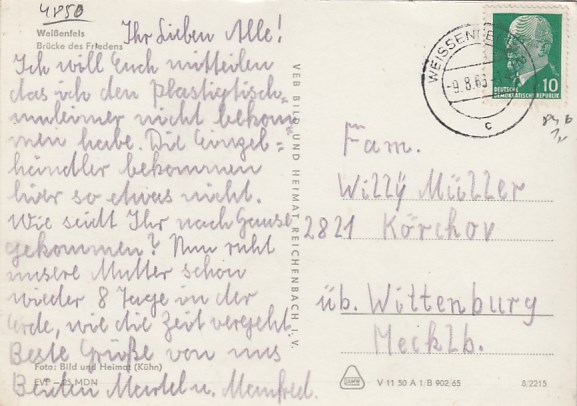 4850
Weißenfels
Brücke des Friedens
Ihr Lieben Alle!
Ich will Euch mitteilen
das ich den Plastigtisch=
muleimer nicht bekom
men habe. Die Einzel=
händler bekommen
hier so etwas nicht.
Wie seidt Ihr nach Hause
gekommen? Nun ruht
unsere Mutter schon
wieder 8 Tage in der
Erde, wie die Zeit vergeht.
Beste Grüße von uns
Beiden Martel u. Manfred.
Foto: Bild und Heimat (Kühn)
EVP –25 MDN
VEB BILD UND HEIMAT REICHENBACH I. V.
WEISSENFELS
-9.8.65
c
DEUTSCHE
DEMOKRATISCHE REPUBLIK
10
Fam.
Willÿ Müller
2821 Körchov
üb. Wittenburg
Mecklb.
V 11 50 A 1/B 902/65
8/2215